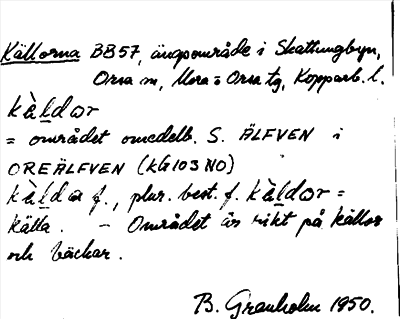 Källorna BB57, ängsområde i Skattungbyn,
Orsa sn, Mora o Orsa tg, Kopparb. l.
kàldor
= området omedelb. S. ÄLFVEN i
OREÄLFVEN (KG103 NO)
kàlda f., plur. best. f. kàldor =
källa. – Området är rikt på källor
och bäckar.
B. Granholm 1950.